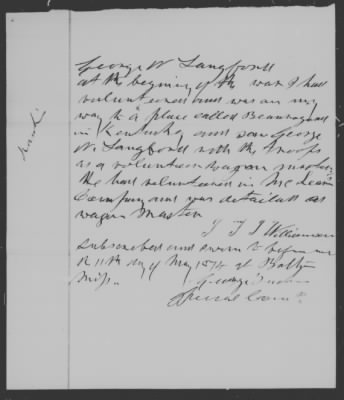 George W Langford
at the begining of the war I had
volunteered and was on my
way to a place called
in Kentucky and saw George
W. Langford with the troops
as a volunteer wagon master
he had volunteered in
Company and was detailed as
wagon Master
Williamson
Subscribed and sworn to before me
11th day of May 1874 at
Miss.
George
Special Com